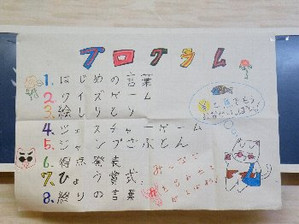 プログラム
1. はじめの言葉
2. クイズゲーム
3. 絵しりとり
4. ジェスチャーゲーム
5. ジャンプざぶとん
6. 得点発表
7. ひょう賞式
8. 終りの言葉
みんなで